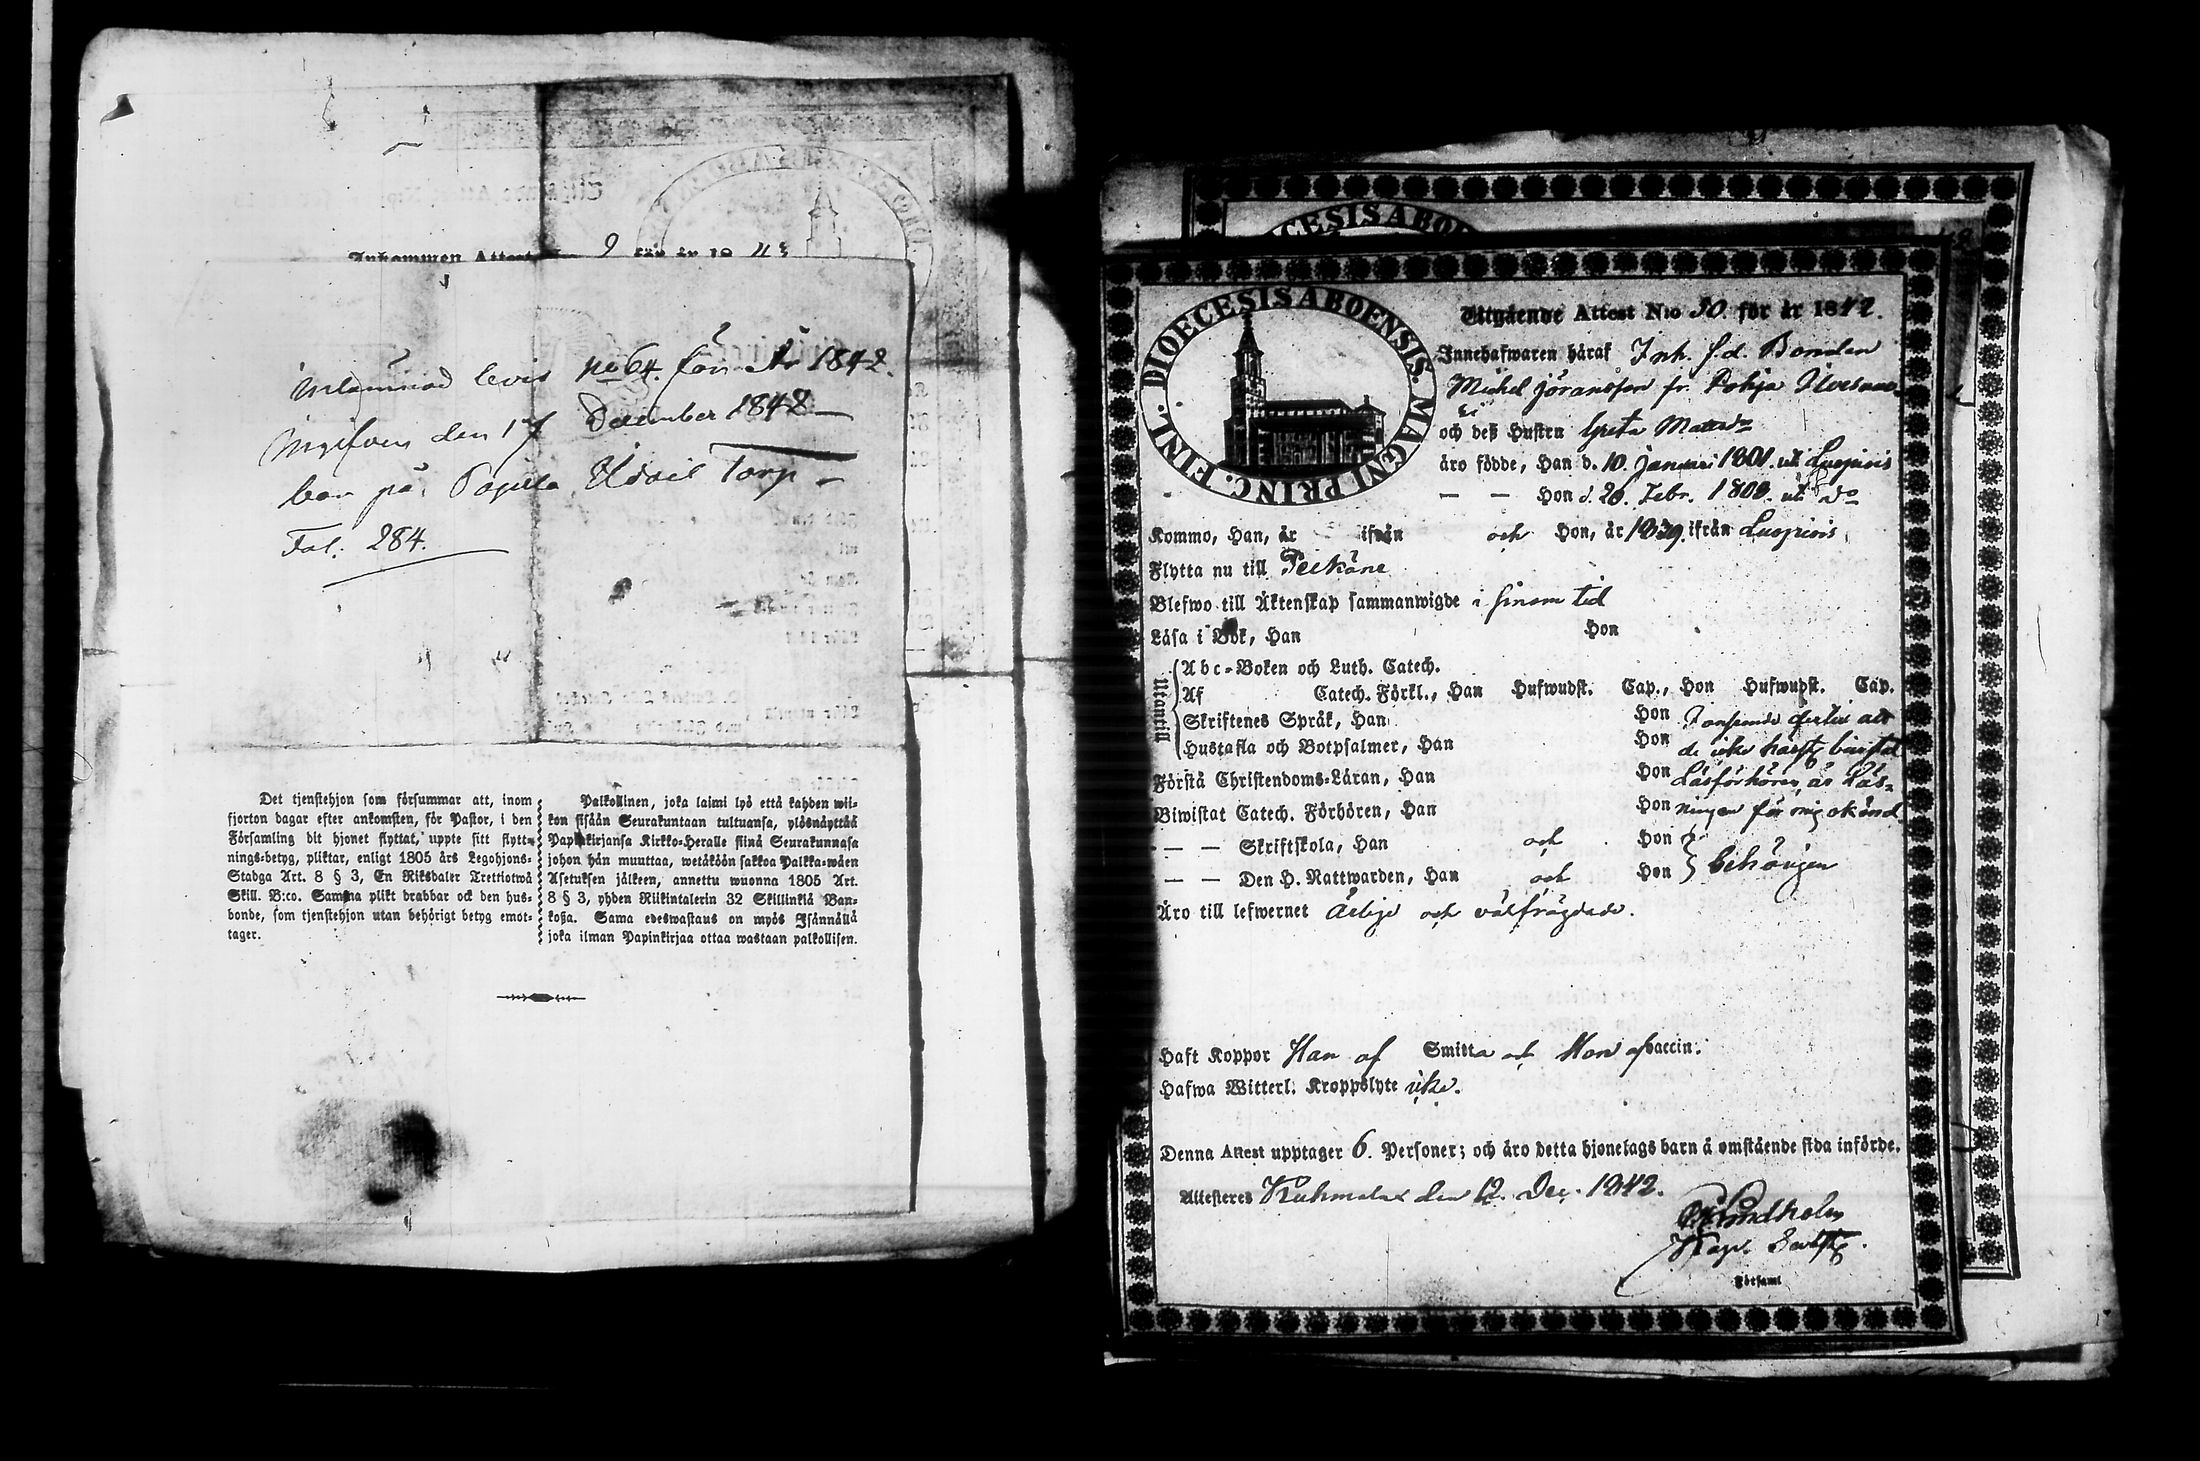 Inkommen Attest 9 för år 1843
Inlämnad bevis No 64. för År 1842.
Ingifven den 17 December 1842
bor på Papilla Torp
Fol. 284.
Det tjenstehjon som försummar att, inom
fjorton dagar efter ankomsten, för Pastor, i den
Församling dit hjonet flyttat, uppte sitt flytt-
nings-betyg, pliktar, enligt 1805 års Legohjons-
Stadga Art. 8 § 3, En Riksdaler Trettiotwå
Skill. B:co. Samma plikt drabbar ock den hus-
bonde, som tjenstehjon utan behörigt betyg emot-
tager.
Palkollinen, joka laimi lyö että kahden wii-
kon sisään Seurakuntaan tultuansa, ylösnäyttää
Papinkirjansa Kirkko-Heralle siinä Seurakunnasa
johon hän muuttaa, wetäköön sakkoa Palkka-wäen
Asetuksen jälkeen, annettu wuonna 1805 Art.
8 § 3, yhden Riikintalerin 32 Skillinkiä Ban-
koßa. Sama edeswastaus on myös Isännällä
joka ilman Papinkirjaa ottaa wastaan palkollisen.
DIOECESIS ABO
DIOECESIS ABOENSIS. MAGNI PRINC. FINL.
Utgående Attest N:o 50. för år 1842.
Innehafwaren häraf Inh. f.d. Bonden
Michel Jöransson fr. Pohja
och deß Hustru Greta Matts dr
äro födde, Han d. 10. Januari 1801. i Luopiois
— — Hon d. 20. Febr. 1808. i do
Kommo, Han, år ifrån och Hon, år 1839. ifrån Luopiois
Flytta nu till Pelkäne
Blefwo till Äktenskap sammanwigde i sinom tid
Läsa i Bok, Han Hon
Utantill
Abc-Boken och Luth. Catech.
Af Catech. Förkl., Han Hufwudst. Cap., Hon Hufwudst. Cap.
Skriftenes Språk, Han Hon
Hustafla och Botpsalmer, Han Hon de icke här bivistat
Förstå Christendoms-Läran, Han Hon Läsförhören, är Läs-
Biwistat Catech. Förhören, Han Hon ningen för mig okänd
— — Skriftskola, Han och Hon
— — Den H. Nattwarden, Han och Hon behörigen
Äro till lefwernet ärlige och välfrägdade.
Haft Koppor Han af Smitta och Hon af vaccin.
Hafwa Witterl. Kroppslyte icke.
Denna Attest upptager 6. Personer; och äro detta hjonelags barn å omstående sida införde.
Attesteres Kuhmalax den 12. Dec. 1842.
Sundholm
Kapl.
Församl